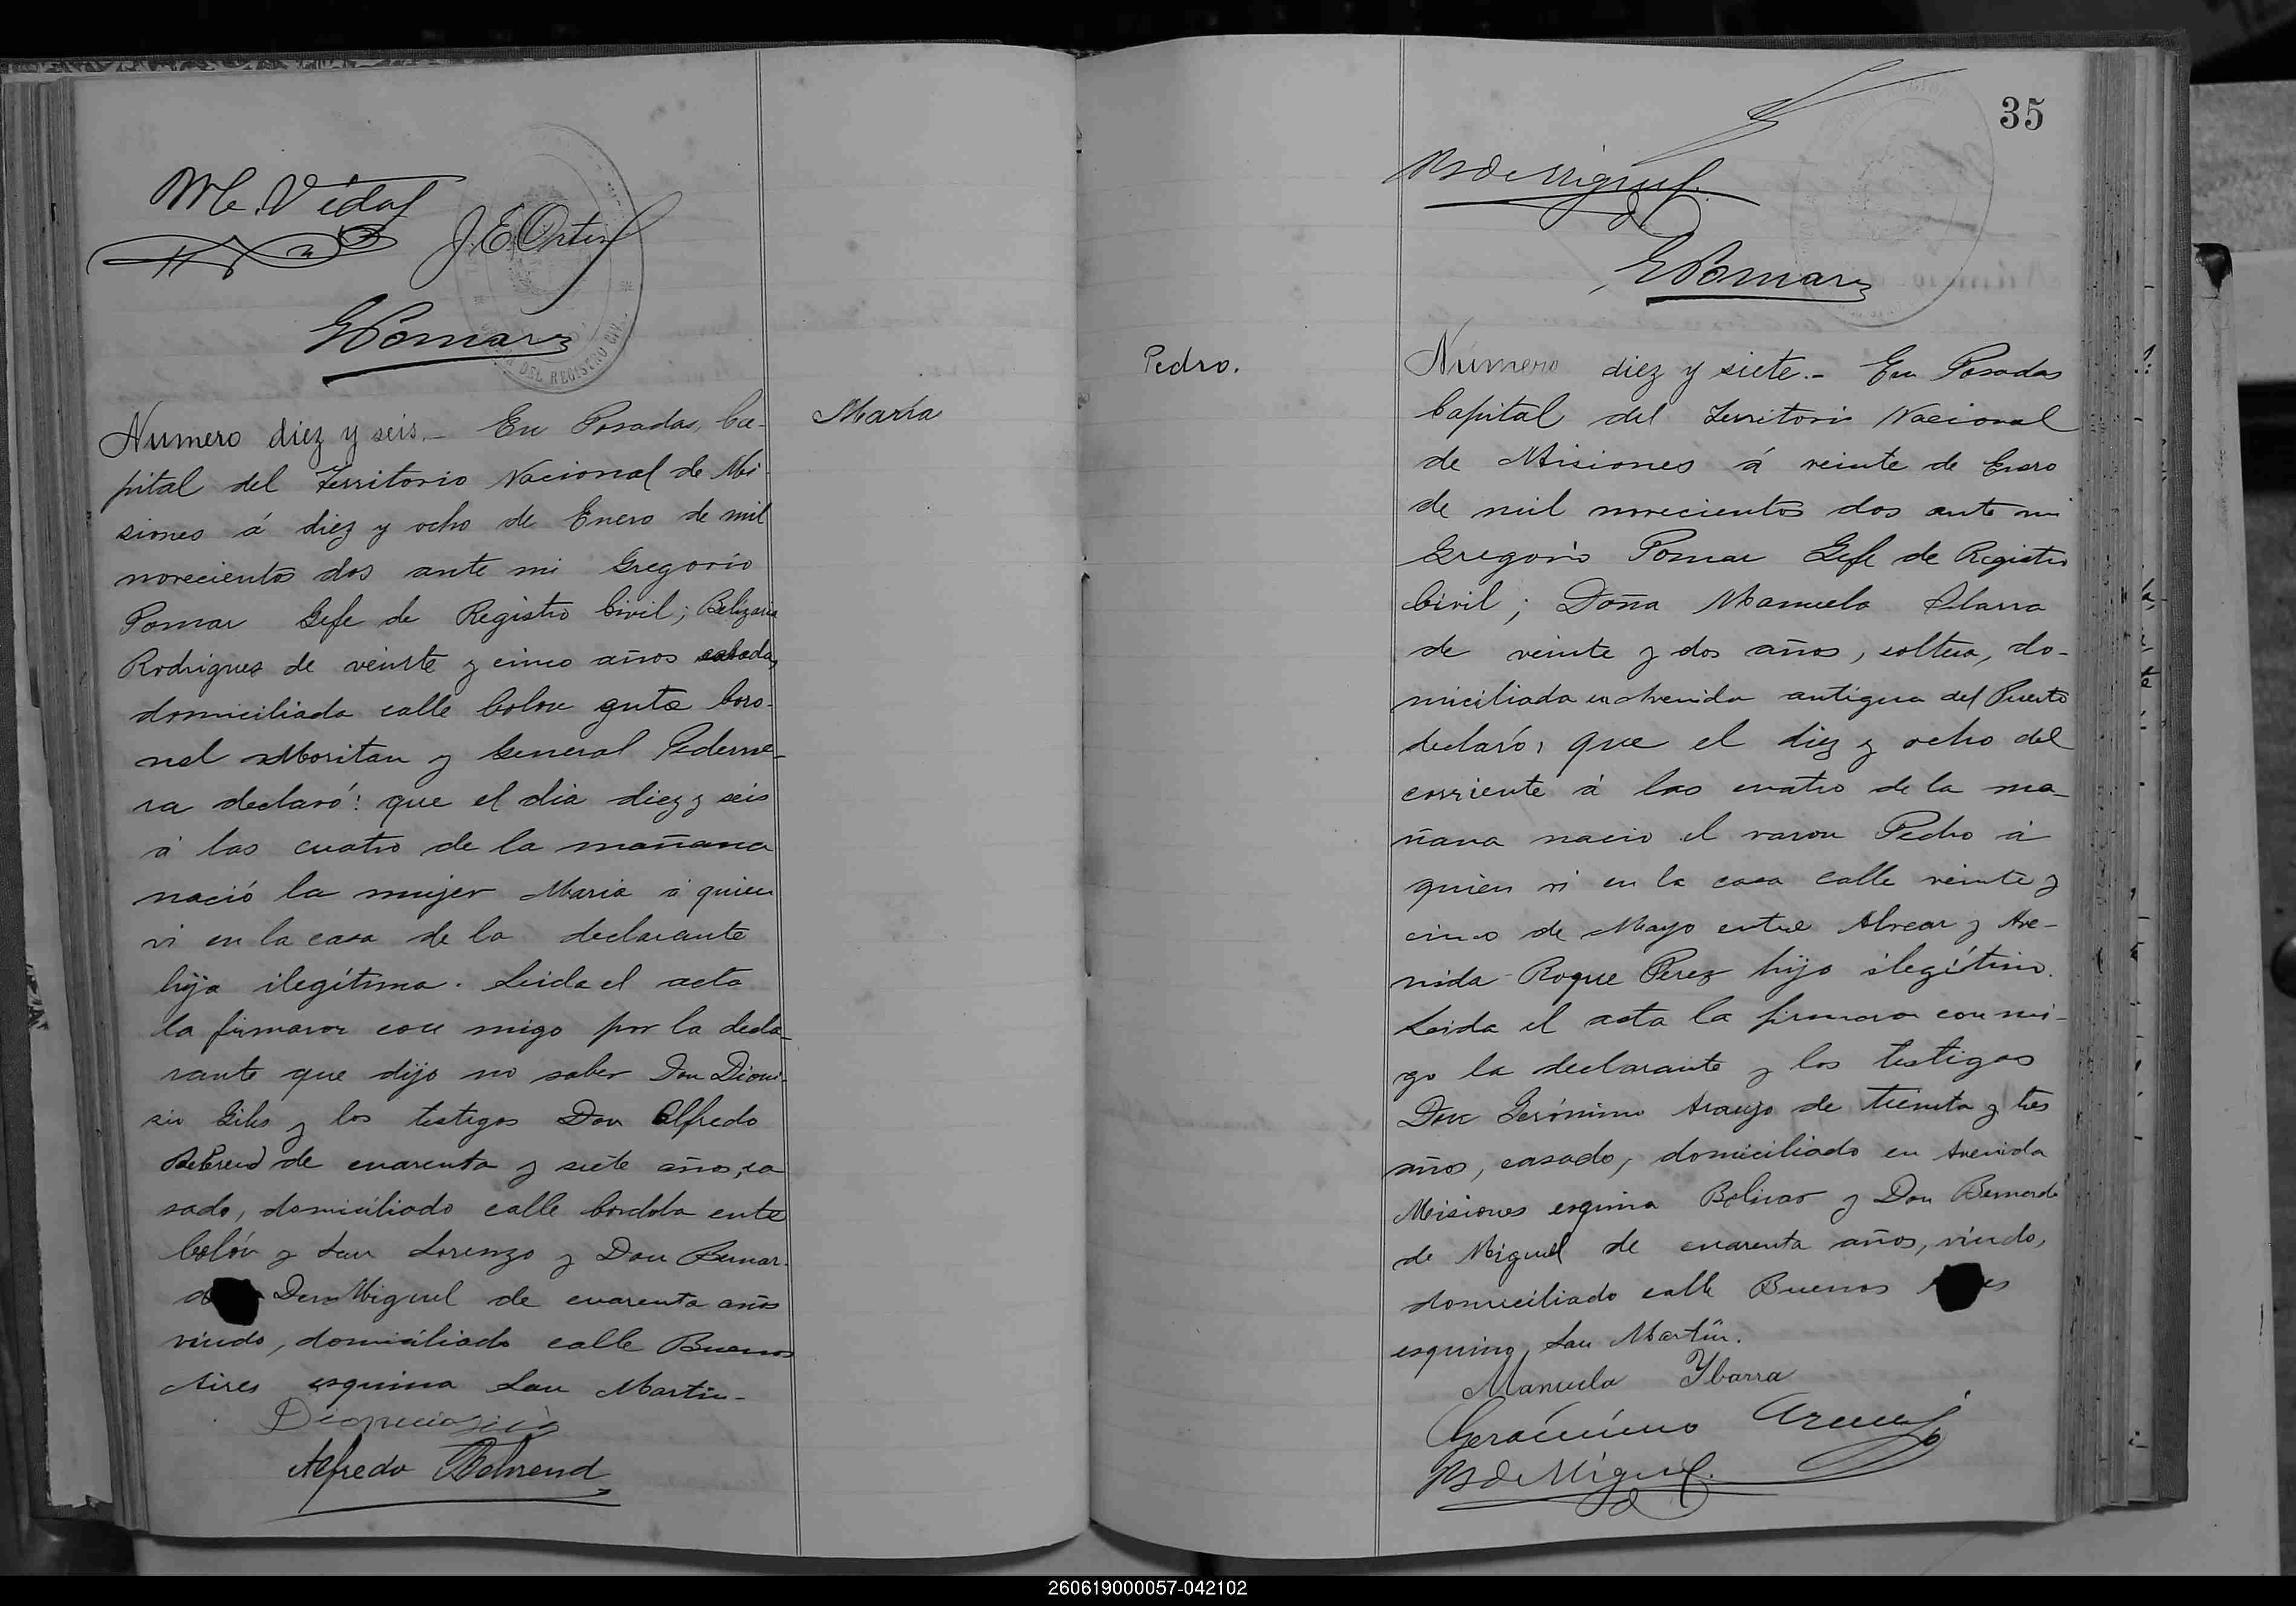 M. Vidal
J. E. Ortiz
GPomar
DEL REGISTRO CIV
Numero diez y seis.- En Posadas, Ca-
pital del Territorio Nacional de Mi-
siones á diez y ocho de Enero de mil
novecientos dos ante mi Gregorio
Pomar Gefe de Registro Civil; Belizaria
Rodrigues de veinte y cinco años
domiciliada calle Colon entre Coro-
nel Moritan y General Pederne-
ra declaró: que el dia diez y seis
á las cuatro de la mañana
nació la mujer Maria á quien
vi en la casa de la declarante
hija ilegítima. Leida el acta
la firmaron con migo por la decla-
rante que dijo no saber Don Dioni-
sio y los testigos Don Alfredo
Behrend de cuarenta y siete años, ca
sado, domiciliado calle Cordoba entre
Colón y San Lorenzo y Don Bernar-
Miguel de cuarenta años
viudo, domiciliado calle Buenos
Aires esquina San Martin-
Alfredo Behrend
María
35
B de Miguel.
GPomar
Pedro.
Número diez y siete.- En Posadas
Capital del Territorio Nacional
de Misiones á veinte de Enero
de mil novecientos dos ante mi
Gregorio Pomar Gefe de Registro
Civil; Doña Manuela Ibarra
de veinte y dos años, soltera, do-
miciliada en Avenida antigua del Puerto
declaró, que el diez y ocho del
corriente á las cuatro de la ma-
ñana nacio el varon Pedro á
quien vi en la casa calle veinte y
cinco de Mayo entre Alvear y Ave-
nida Roque Perez hijo ilegítimo.
Leida el acta la firmaron con mi-
go la declarante y los testigos
Don Gerónimo Araujo de treinta y tres
años, casado, domiciliado en Avenida
Misiones esquina Bolivar y Don Bernardo
de Miguel de cuarenta años, viudo,
domiciliado calle Buenos
esquina San Martín.
Manuela Ybarra
Gerónimo Araujo
B de Miguel.
260619000057-042102